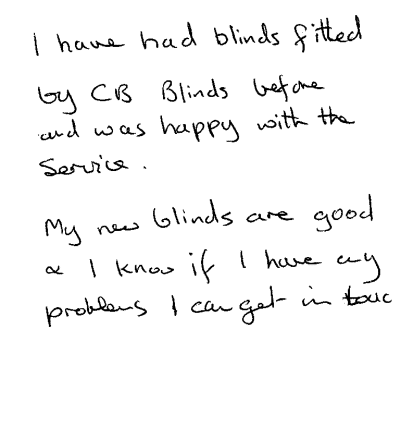 I have had blinds fitted
by CB Blinds before
and was happy with the
Service.
My new blinds are good
& I know if I have any
problems I can get in touc